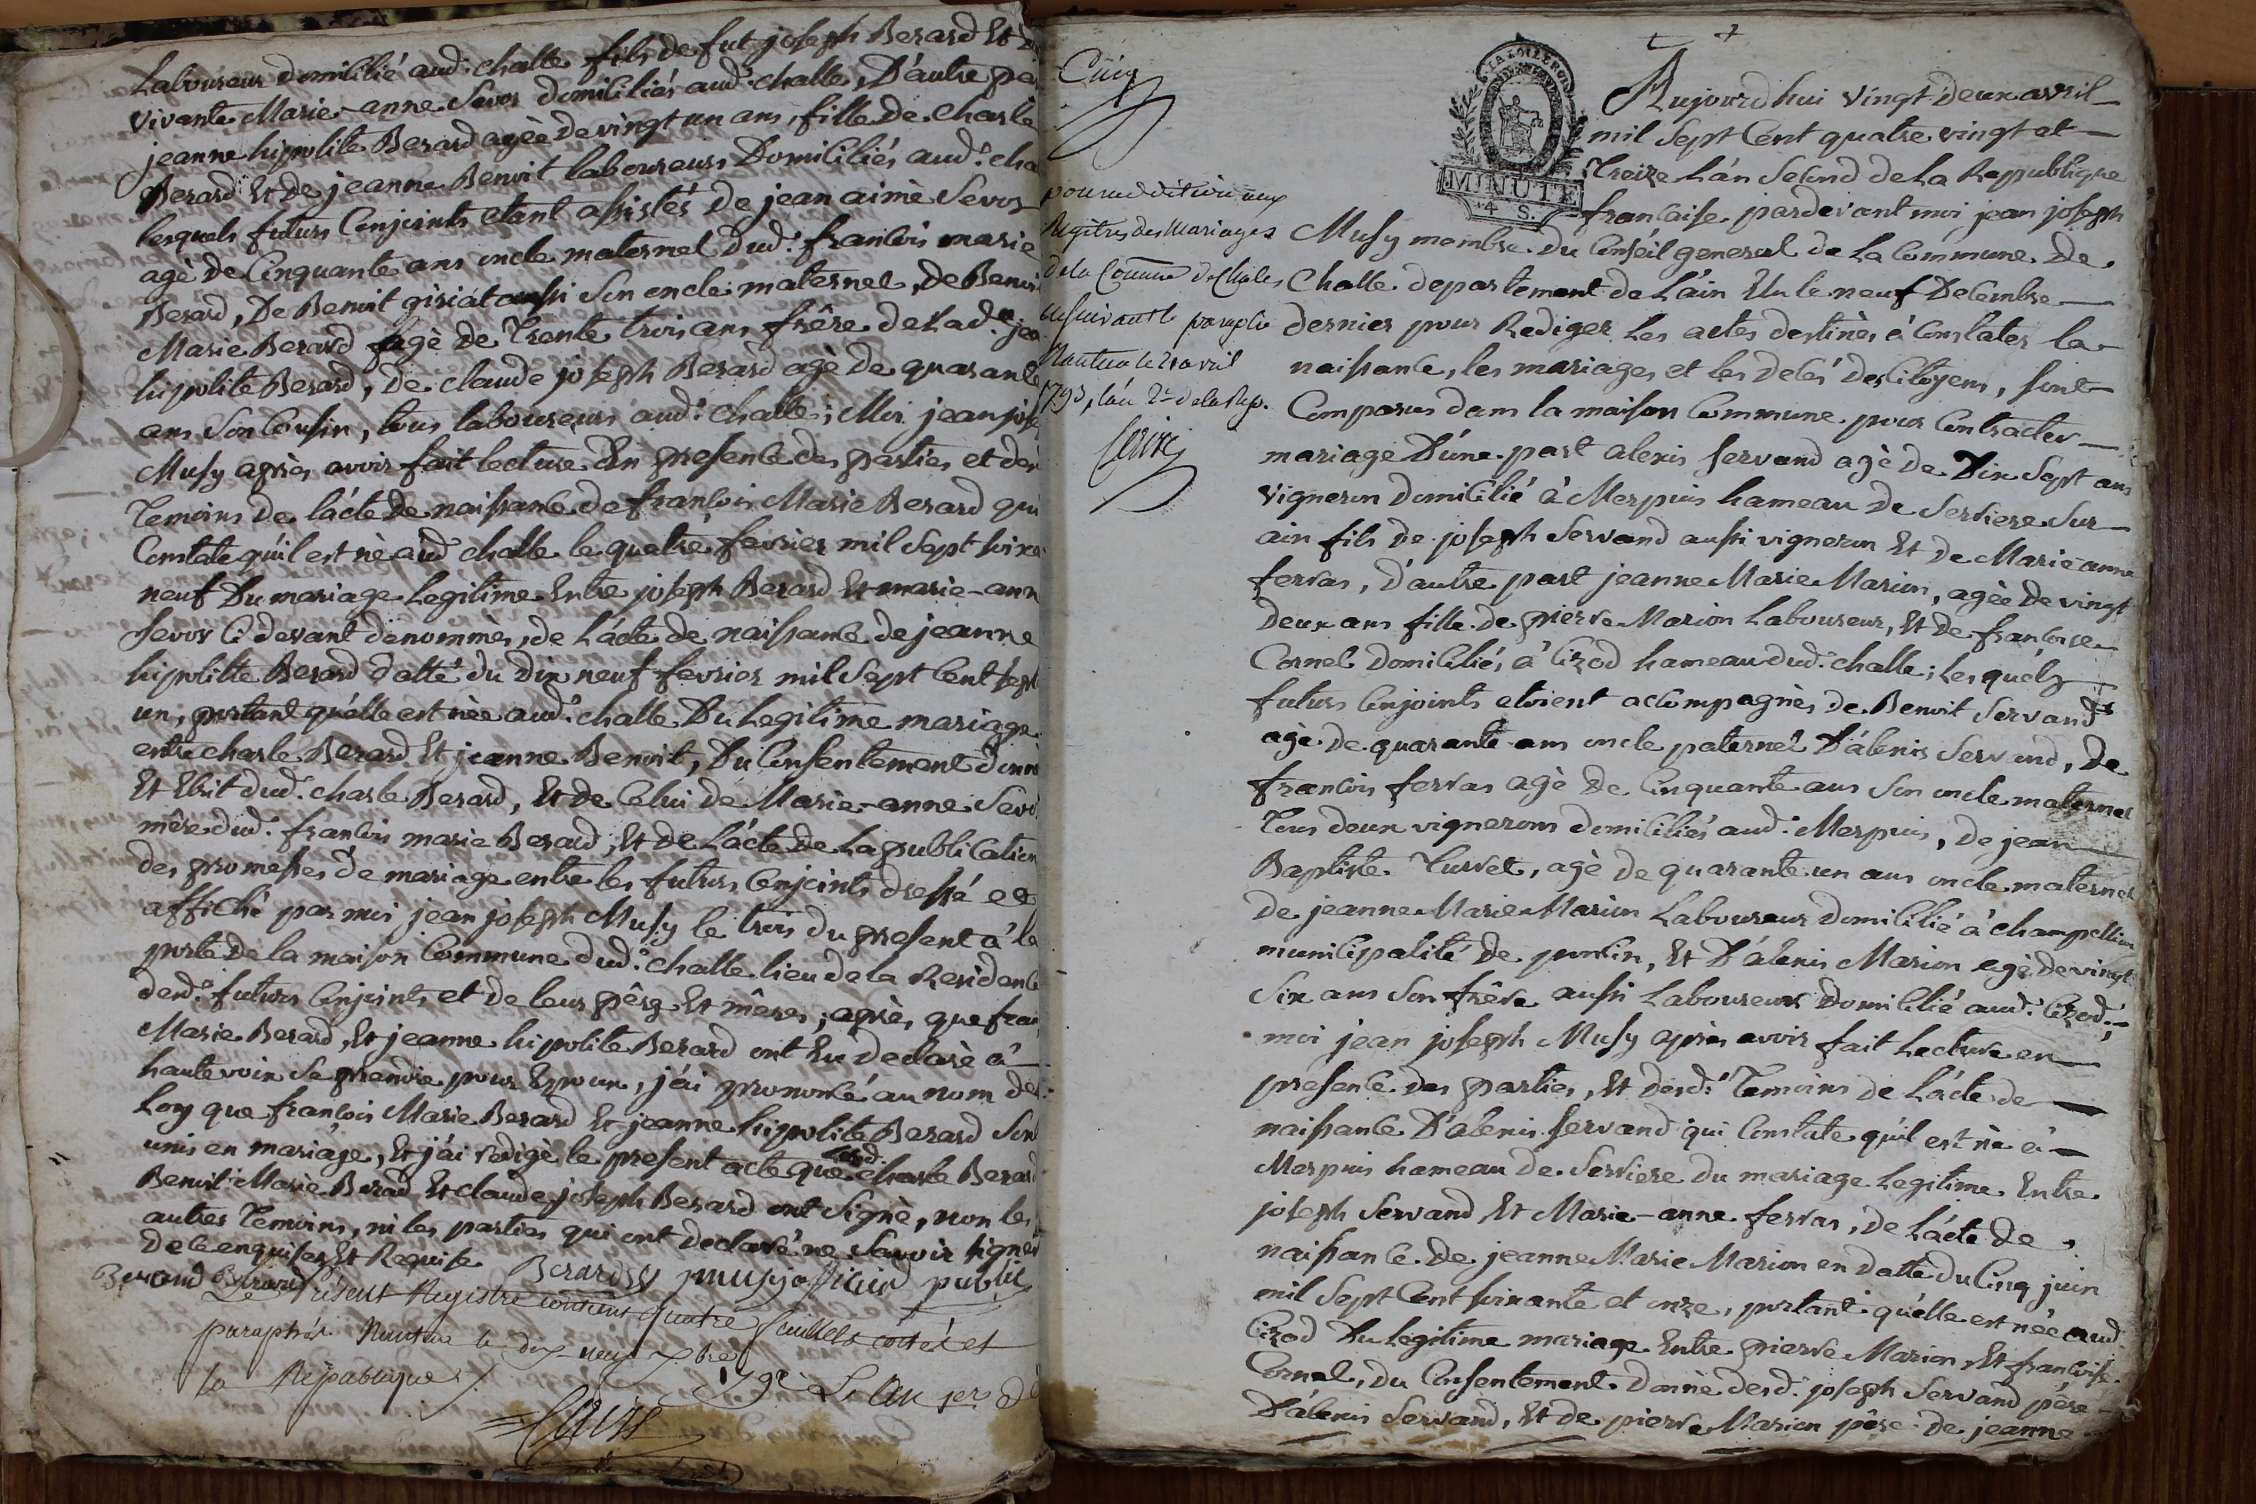 Laboureur domicilié aud. challe, fils de fut joseph Berard Et de
vivante Marie-anne Sevos domiciliés aud. challe, D'autre par
jeanne hipolite Berard agèe de vingt un ans, fille de Charle
Berard Et de jeanne Benoit laboureurs Domiciliés aud. cha
lesquels futurs Conjoints etant assistés de jean aimé Sevos
agè de Cinquante ans oncle maternel dud. francois marie
Berard, De Benoit girïat aussi son oncle maternel, de Benoi
Marie Berard agè de Trente trois ans frêre de Lad. jea
hipolite Berard, de claude joseph Berard agè de quarante
ans son Cousin, tous laboureurs aud. challe; Moi jean jose
Musy après avoir fait lecture En presence des parties et des
Temoins de l'acte de naissance de françois Marie Berard qui
Constate qu'il est nè aud. challe le quatre fevrier mil sept soixa
neuf Du mariage Legitime Entre joseph Berard Et marie-ann
Sevos Ci devant denommès, de L'acte de naissance de jeanne
hipolitte Berard datté du Dix neuf fevrier mil sept cent sept
un, portant qu'elle est nèe aud. challe Du Legitime mariage
entre charle Berard Et jeanne Benoit, Du Consentement donné
Et Ecrit dud. charle Berard, Et de Celui de Marie-anne Sevo
mêre dud. francois marie Berard, Et de L'acte de La publication
des promesses de mariage entre les futurs Conjoints dressé et
affiché par moi jean joseph Musy le trois du present à la
porte de la maison Commune dud. challe lieu de la Residence
desd. futurs Conjoints et de leurs pêres Et mêres; après que fran
Marie Berard, Et jeanne hipolite Berard ont Eu declarè à
haute voix se prendre pour Epoux, j'ai prononcé au nom de
Loy que françois Marie Berard Et jeanne hipolite Berard sont
unis en mariage, Et j'ai redigè le present acte que lesd. charle Berard
Benoit Marie Berard Et claude joseph Berard ont signè, non les
autres Temoins, ni les parties qui ont declaré ne savoir signer
de ce enquises Et Requise
Berard Berard Berard musy officier public
Le Présent Registre contenant quatre feuillets cottés et
paraphés Nantua le dix-neuf xbre
1792 L'an 1er de
la République
Cuirs
pour addition aux
Regitres des Mariages
de la Commune de Chales
paraphé
Nantua le avril
1793, l'an 2e de la Rep.
LA LOI LE ROI
MINUTE
4 S.
Aujourd'hui vingt deux avril
mil sept Cent quatre vingt et
Treize L'an second de La Republique
francaise pardevant moi jean joseph
Musy membre du Conseil general de La Commune de
Challe departement de L'ain Elu le neuf Decembre
dernier pour Rediger Les actes destinès à Constater la
naissance, les mariages et les decès des Citoyens, sont
Comparus dans la maison Commune pour Contracter
mariage D'une part alexis servand agè de Dix sept ans
vigneron domicilié à Merpuis hameau de Serriere sur
ain fils de joseph Servand aussi vigneron Et de Marie anne
ferras, D'autre part jeanne Marie Marion, agèe de vingt
deux ans fille de pierre Marion Laboureur, Et de francoise
Cornet domiciliés à Cizod hameau dud. challe; Lesquels
futurs Conjoints etoient accompagnès de Benoit Servand
agè de quarante ans oncle paternel D'alexis Servand, de
francois ferras agè de Cinquante ans son oncle maternel
Tous deux vignerons domiciliés aud. Merpuis, de jean
Baptiste Turret, agè de quarante un ans oncle maternel
de jeanne Marie Marion Laboureur domicilié à champellion
municipalité de poncin, Et D'alexis Marion agè de vingt
six ans son frêre aussi Laboureur domicilié aud. Cizod;
moi jean joseph Musy après avoir fait Lecture en
presence des parties, Et desd. Temoins de L'acte de
naissance D'alexis servand qui Constate qu'il est nè à
Merpuis hameau de Serriere du mariage Legitime Entre
joseph Servand Et Marie-anne ferras, de L'acte de
naissance de jeanne Marie Marion en datte du Cinq juin
mil sept Cent soixante et onze, portant qu'elle est née aud.
Cizod Du Legitime mariage Entre pierre Marion Et francoise
Cornet, du Consentement Donnè desd. joseph Servand pêre
D'alexis Servand, Et de pierre Marion pêre de jeanne